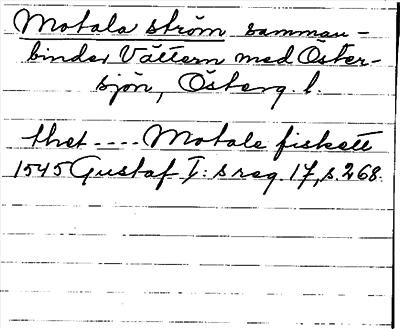 Motala ström samman-
binder Vättern med Öster-
sjön, Österg. l.
thet .... Motale fiskett
1545 Gustaf I:s reg. 17, s. 268.